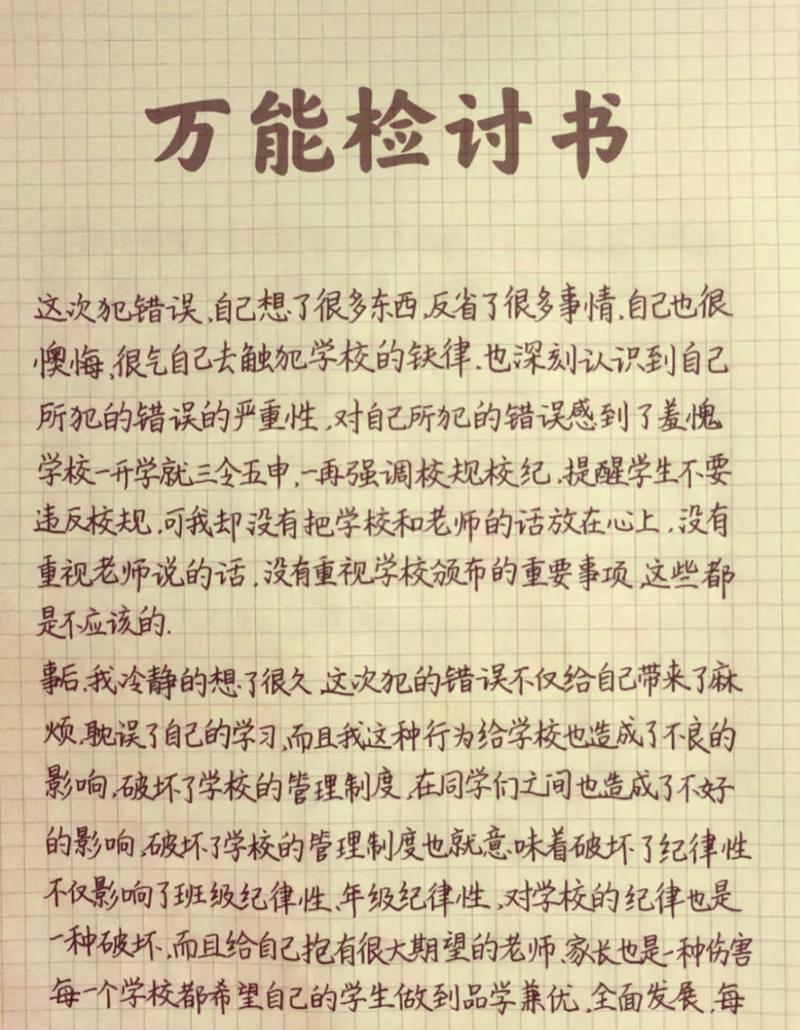 万能检讨书
这次犯错误,自己想了很多东西,反省了很多事情,自己也很
懊悔,很气自己去触犯学校的铁律.也深刻认识到自己
所犯的错误的严重性,对自己所犯的错误感到了羞愧
学校一开学就三令五申,一再强调校规校纪,提醒学生不要
违反校规,可我却没有把学校和老师的话放在心上,没有
重视老师说的话,没有重视学校颁布的重要事项,这些都
是不应该的.
事后,我冷静的想了很久,这次犯的错误不仅给自己带来了麻
烦,耽误了自己的学习,而且我这种行为给学校也造成了不良的
影响,破坏了学校的管理制度,在同学们之间也造成了不好
的影响,破坏了学校的管理制度也就意味着破坏了纪律性
不仅影响了班级纪律性,年级纪律性,对学校的纪律也是
一种破坏,而且给自己抱有很大期望的老师,家长也是一种伤害
每一个学校都希望自己的学生做到品学兼优,全面发展,每